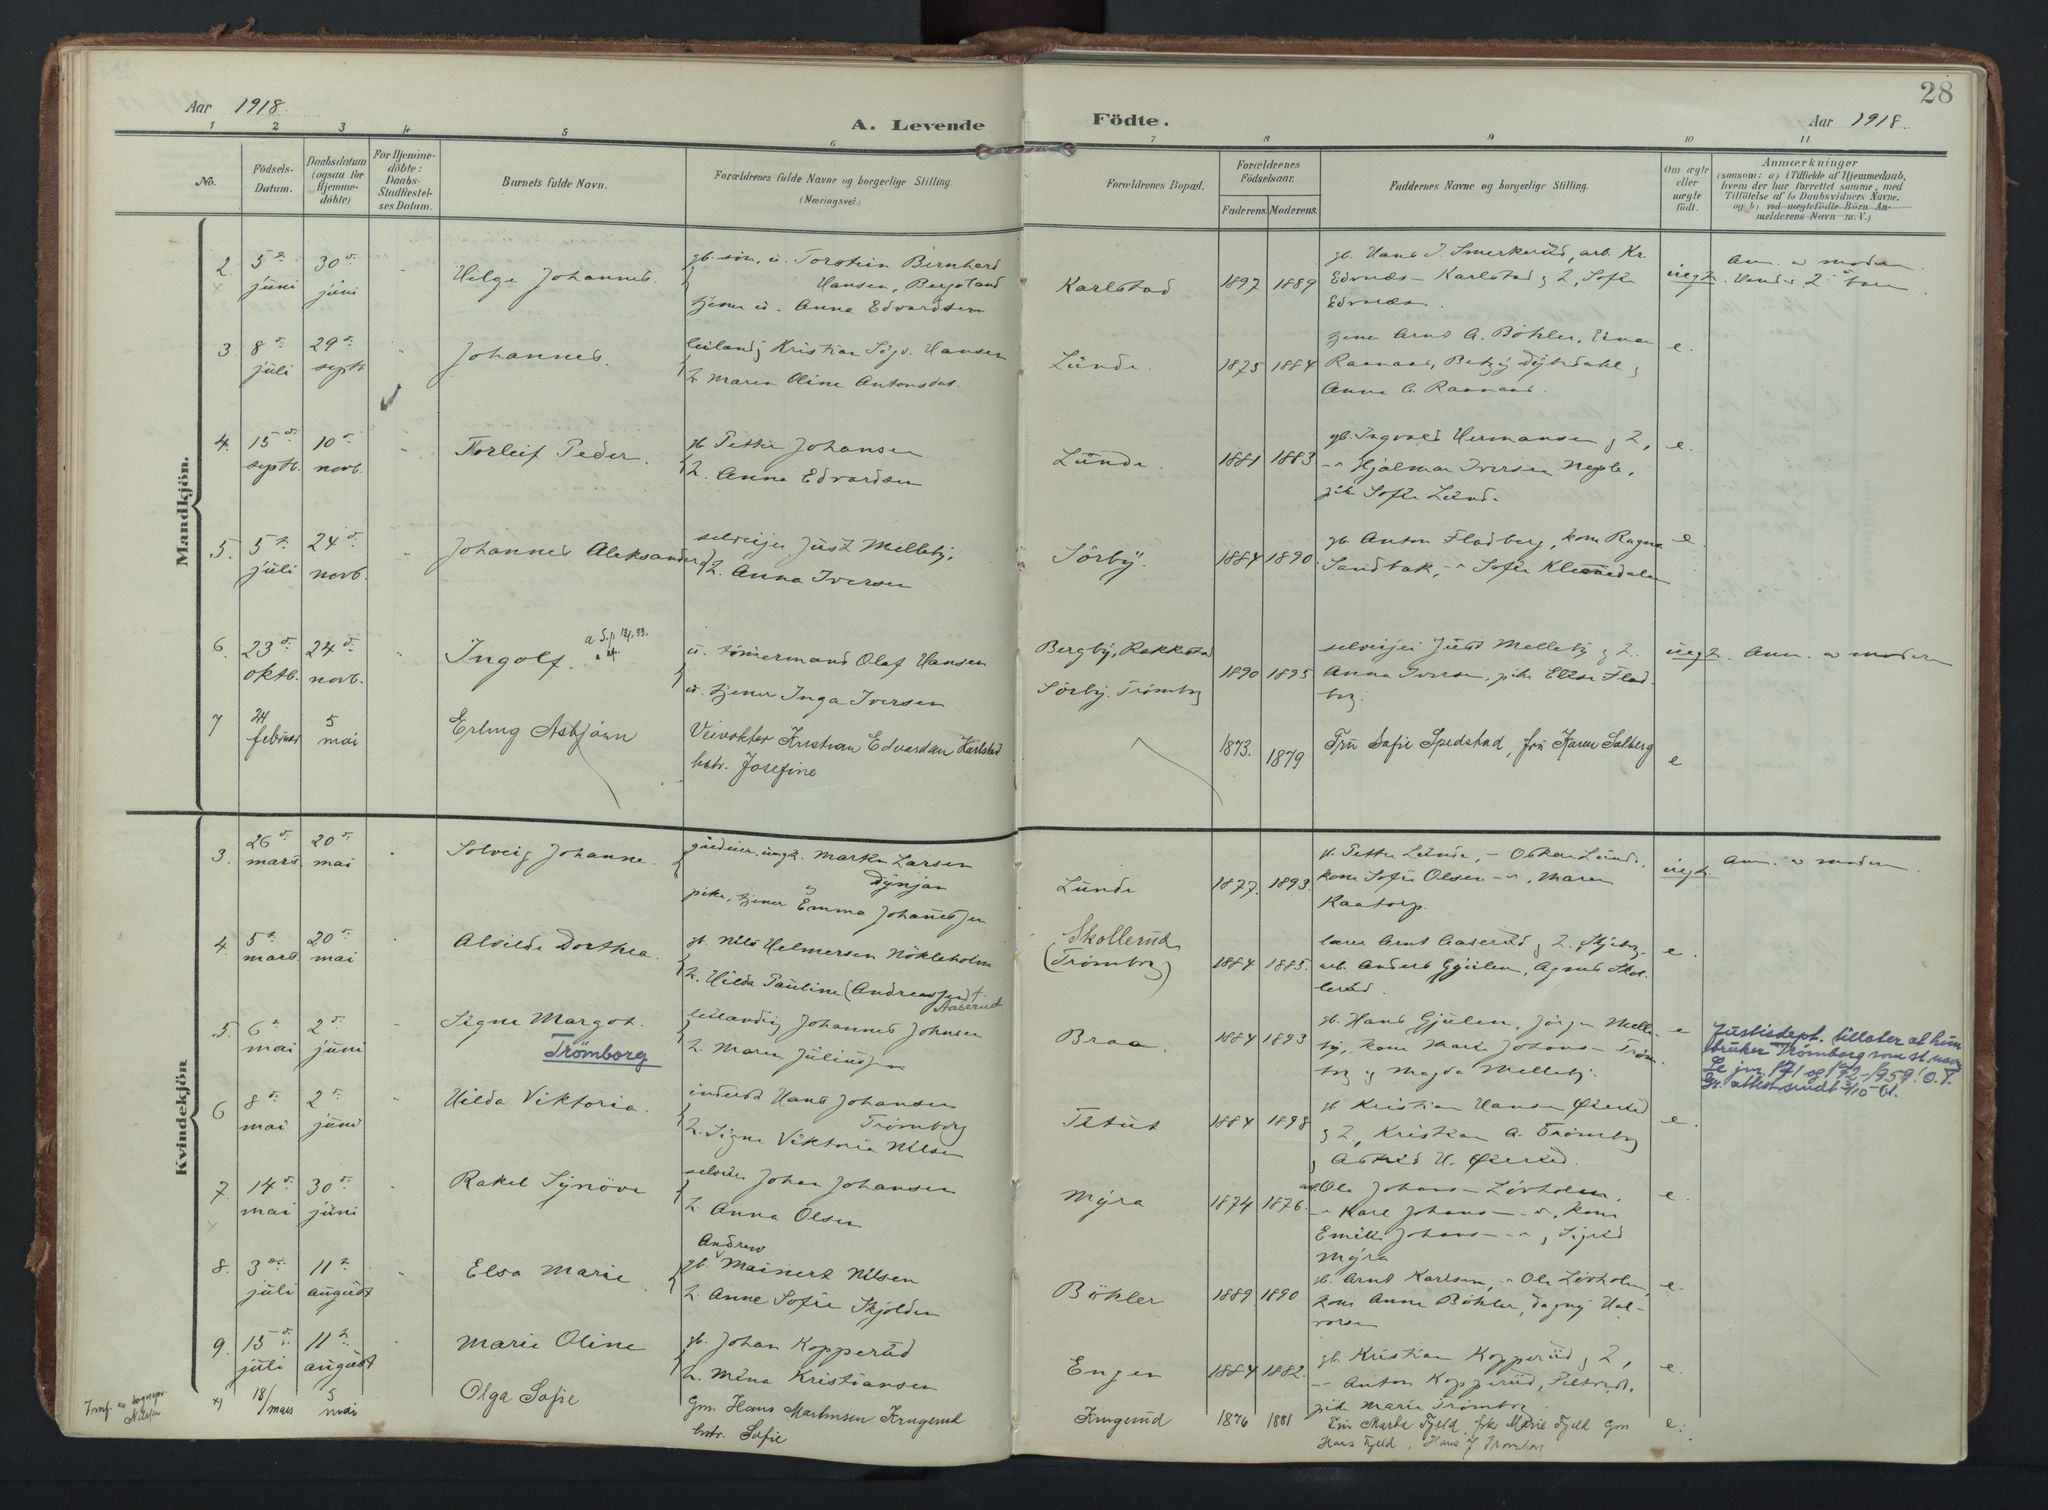 28
Aar 1918.
A. Levende Födte.
Aar 1918.
1 2 3 4 5 6 7 8 9 10 11
No.
Födsels-
Datum.
Daabsdatum
(ogsaa for
Hjemme-
döbte)
For Hjemme-
döbte:
Daabs-
Stadfæstel-
ses Datum.
Barnets fulde Navn.
Forældrenes fulde Navne og borgerlige Stilling.
(Næringsvei.)
Forældrenes Bopæl.
Forældrenes
Födselsaar.
Faderens. Moderens.
Faddernes Navne og borgerlige Stilling.
Om ægte
eller
uægte
födt.
Anmærkninger
(saasom: a) i Tilfælde af Hjemmedaab,
hvem der har forrettet samme, med
Tilföielse af to Daabsvidners Navne.
og b) ved uægtefödte Börn An-
melderens Navn m. V.)
Mandkjön.
2. 5 juni 30 juni Helge Johannes. Torstein Bernhard
Hansen, Bergsland
tjener u. Anna Edvardsen
Karlstad 1897 1889
gb. Hans J. Smerkerud, arb. Kr.
Edvnæs - Karlstad g 2, Sofie
Edvnæs.
uegt. Anm. av moderen.
3. 8 juli 29 septb. Johannes.
Kristian Sigv. Hansen
Maren Oline Antonsdat.
Lunde. 1875 1884
tjener Arnt A. Böhler, Einar
Raanaas,
Anna C. Raanaas
e.
4. 15 septb. 10 novb. Torleif Peder.
gb. Petter Johansen
Anna Edvardsen
Lunde. 1881 1883
gb. Ingvald Hermansen g 2,
Hjalmar Iversen
pike Sofie Lunde.
e.
5. 5 juli 24 novb. Johannes Aleksander
selveier Just Melleby,
Anna Iversen
Sörby. 1884 1890.
gb. Anton Fladberg, kone Ragna
Sandbak, Sofie Klemedalen
e.
6. 23 oktb. 24 novb. Ingolf.
u. tömmermand Olaf Hansen
u. tjener Inga Iversen
Bergby, Rakkestad
Sörby. Trömborg
1890 1895.
selveier Just Melleby g 2.
Anna Iversen, pike Elise Flad-
berg.
uegt. Anm. av moderen
7 24 februar 5 mai Erling Asbjörn
Veivokter Kristian Edvardsen Karlstad
hstr. Josefine
1873. 1879
Fru Sofie Spedstad, fru Karen Solberg
e
Kvindekjön
3. 26 mars 20 mai Solveig Johanne.
gaardeier, ungk. Martin Larsen
Dynjan
pike, tjener Emma Johannesen
Lunde 1877. 1893.
gb. Petter Lunde, - Oskar Lunde,
kone Sofie Olsen - Maren
Raatorp.
uegt. Anm. av moderen
4. 5 mars 20 mai Alvilde Dorthea.
gb. Nils Helmersen Nökleholm
Hilda Pauline (Andreassen)
Aaserud
Skollerud
(Trömborg)
1884 1885.
lærer Arnt Aaserud g 2.
arb. Anders Gjulem, Agnes Skol-
lerud.
e.
5. 6 mai 2 juni Signe Margot.
Trömborg
leilænding Johannes Johnsen
Maren Juliussen
Braa. 1884 1893
gb. Hans Gjulem, Jörgen Melle-
by, kone Marie Johans- Tröm-
borg og Magda Melleby.
e
Justisdept. tillater at hun
bruker Trömborg som sl. navn
6 8 mai 2 juni Hilda Viktoria.
inderst Hans Johansen
Trömborg
Signe Viktoria Nilsen
Tetut 1884 1898
gb. Kristian Hansen Österud
g 2, Kristian A. Trömborg
g Astrid H. Österud.
e.
7. 14 mai 30 juni Rakel Synöve
selveier Johan Johansen
Anna Olsen
Myra 1874 1876.
arb. Ole Johans- Lövholm,
Karl Johans- kone
Emilie Johans- g Sigrid
Myra
e.
8. 3 juli 11 august Elsa Marie
Andrew
gb. Mainert Nilsen
Anne Sofie Skjolden
Böhler 1889 1890
gb. Arnt Karlsen, Ole Lövholm,
kone Anne Böhler, Dagny Hal-
vorsen
e.
9. 15 juli 11 august Marie Oline
gb. Johan Kopperud
Mina Kristiansen
Engen 1884 1882.
gb. Kristian Kopperud g 2,
Anton Kopperud,
pike Marie Trömborg
e.
x) 18/mars 5 mai Olga Sofie
Gm Hans Martinsen Krugerud
hstr. Sofie
Krugerud 1876 1881
Fru Marta Fjeld, frk. Marie Fjeld Gm
Hans Fjeld, Hans J Trömborg
e.